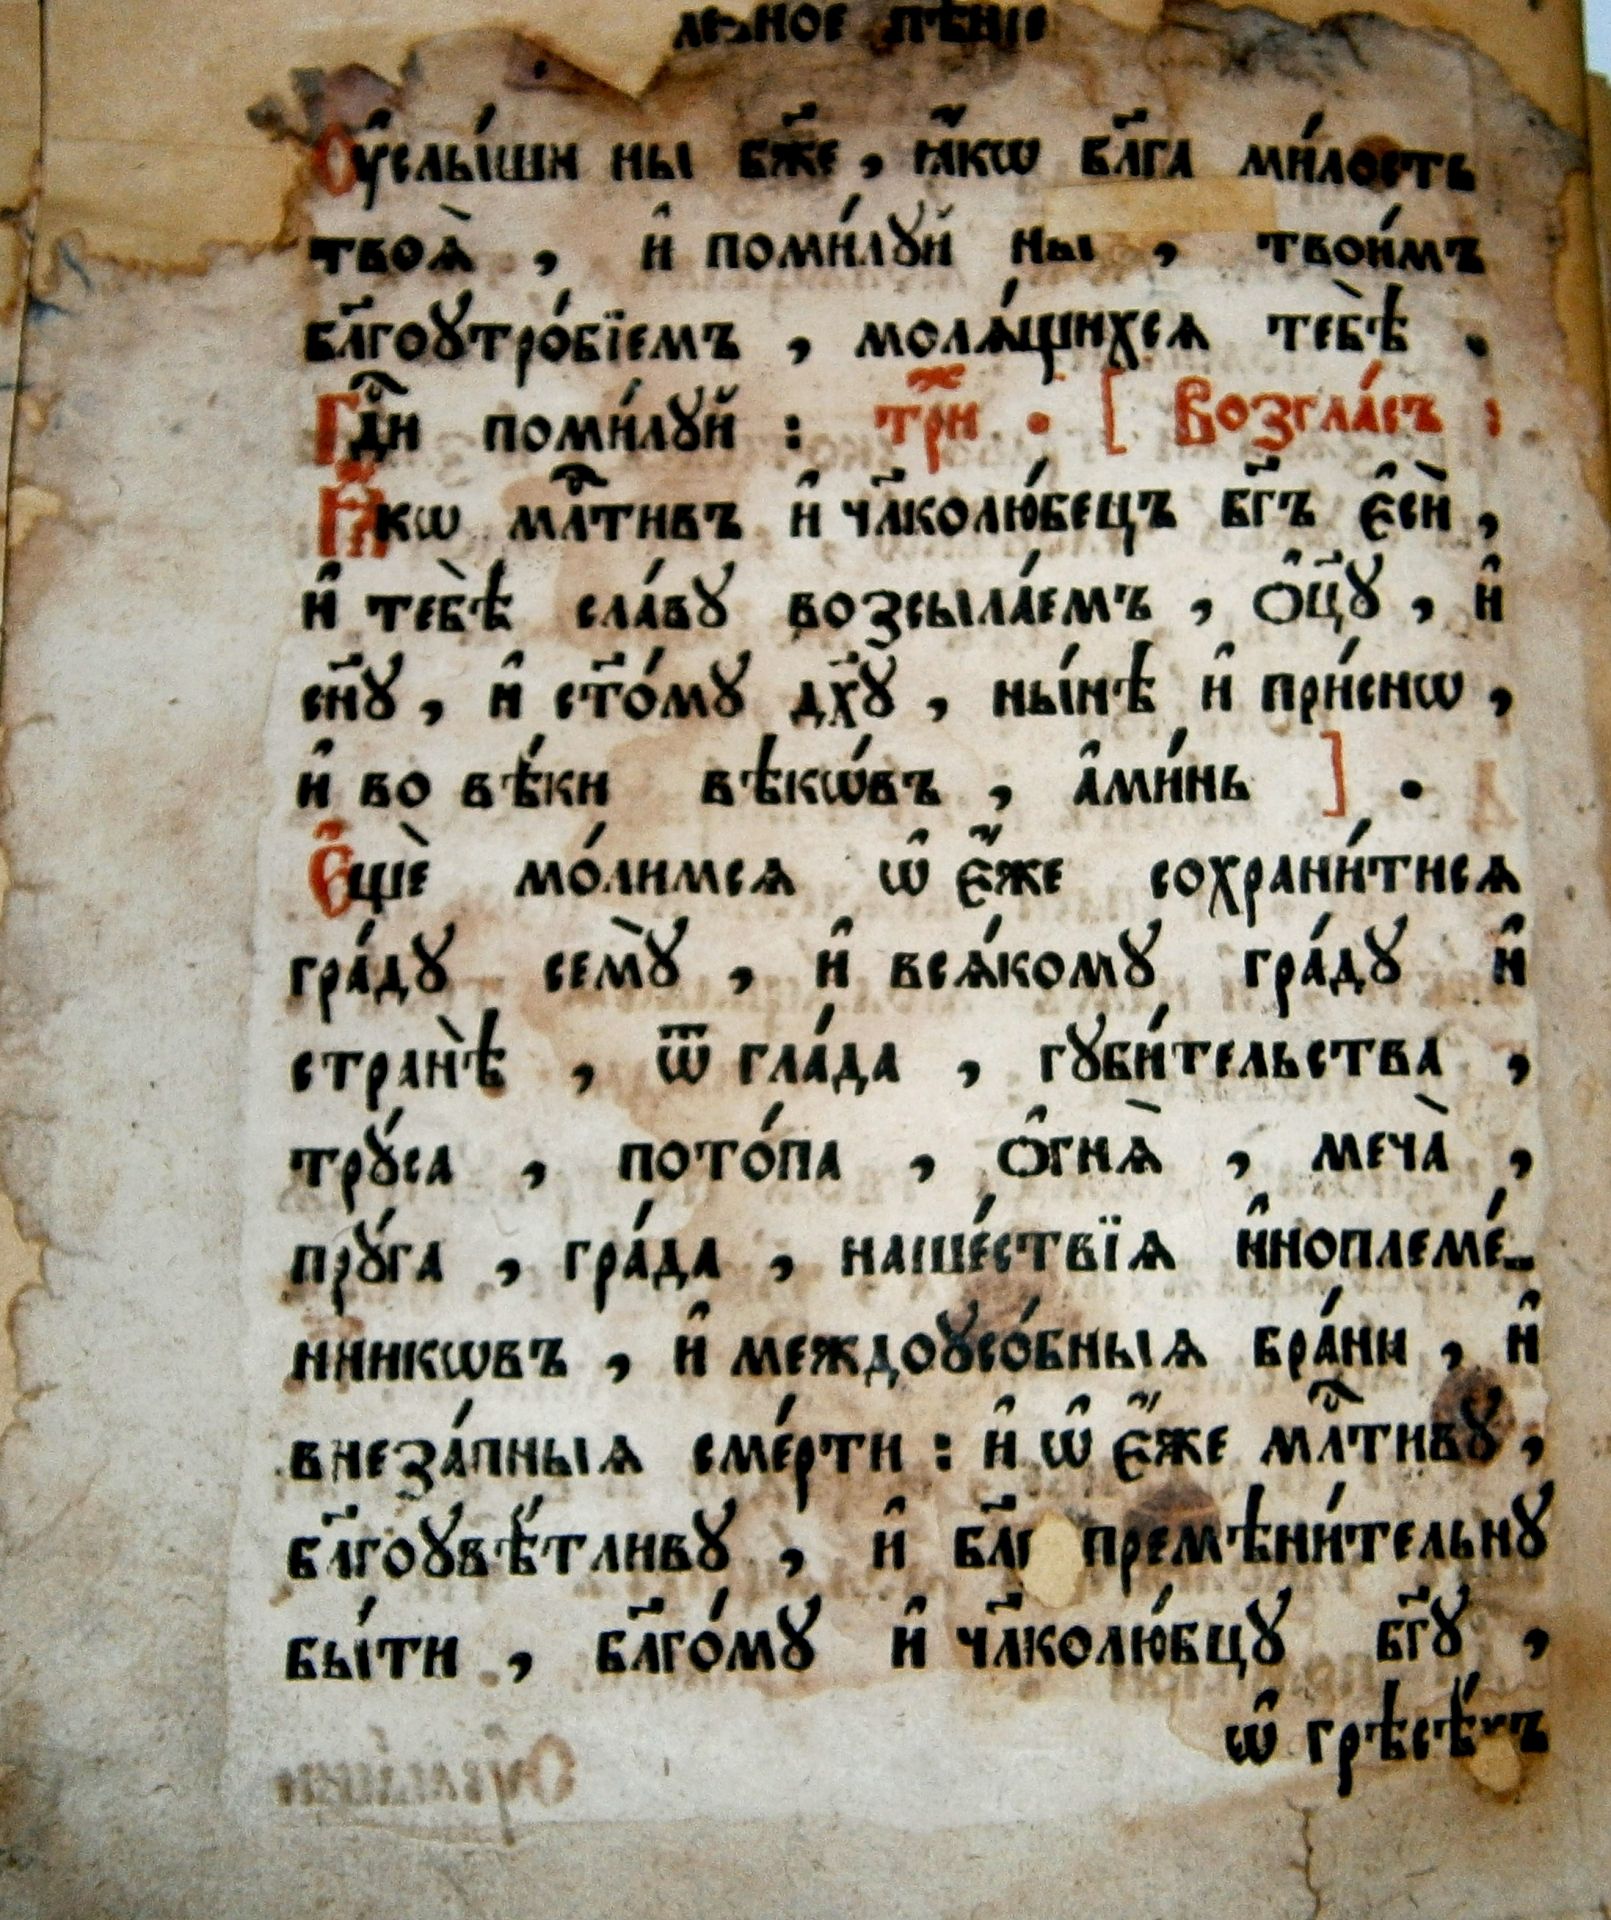 лебное пѣнїе
Оу҆слы́ши ны бж҃е , ꙗ҆́кѡ бл҃га ми́лость
твоѧ̀ , и҆ поми́лꙋй ны , твои́мъ
бл҃гоꙋтро́бїемъ , молѧ́щихсѧ тебѣ̀ .
Гдⷭ҇и поми́лꙋй : триⷤ . [ Возгла́съ :
Ꙗ҆́кѡ млⷭ҇тивъ и҆ чл҃колю́бецъ бг҃ъ є҆сѝ ,
и҆ тебѣ̀ сла́вꙋ возсыла́емъ , ѻ҆ц҃ꙋ̀ , и҆
сн҃ꙋ , и҆ ст҃о́мꙋ дх҃ꙋ , ны́нѣ и҆ при́снѡ ,
и҆ во вѣ́ки вѣкѡ́въ , а҆ми́нь ] .
Є҆щѐ мо́лимсѧ ѡ҆ є҆́же сохрани́тисѧ
гра́дꙋ семꙋ̀ , и҆ всѧ́комꙋ гра́дꙋ и҆
странѣ̀ , ѿ гла́да , гꙋби́тельства ,
трꙋ́са , пото́па , ѻ҆гнѧ̀ , меча̀ ,
прꙋ́га , гра́да , наше́ствїѧ и҆ноплеме́-
нникѡвъ , и҆ междоꙋсо́бныѧ бра́ни , и҆
внеза́пныѧ сме́рти : и҆ ѡ҆ є҆́же млⷭ҇тивꙋ ,
бл҃гоꙋвѣ́тливꙋ , и҆ бл҃г премѣни́тельнꙋ
бы́ти , бл҃го́мꙋ и҆ чл҃колю́бцꙋ бг҃ꙋ ,
ѡ҆ грѣсѣ́хъ